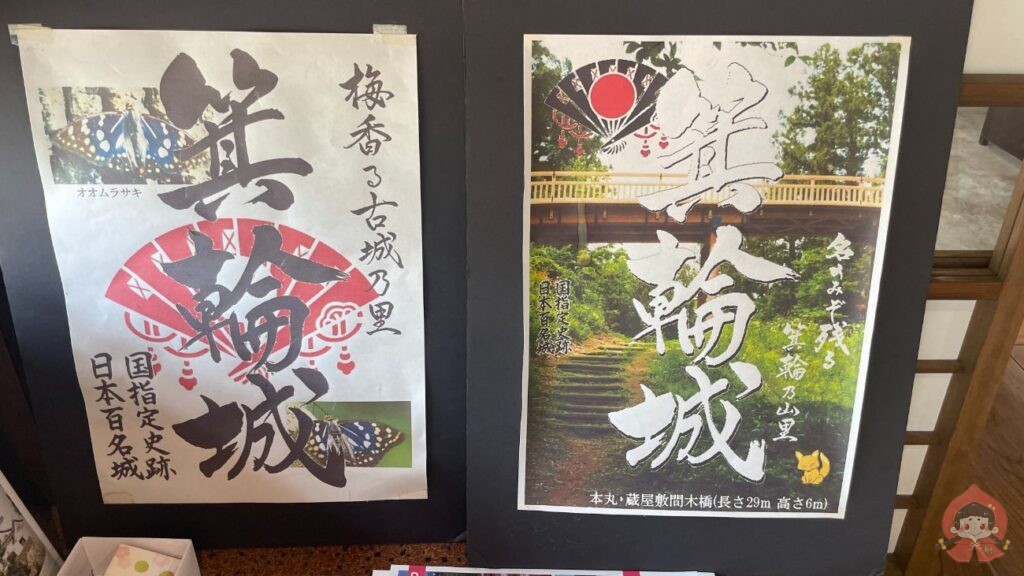 箕輪城
梅香る古城乃里
オオムラサキ
国指定史跡
日本百名城
箕輪城
名のみぞ残る
箕輪乃山里
国指定史跡
日本百名城
本丸・蔵屋敷間木橋(長さ29m 高さ6m)